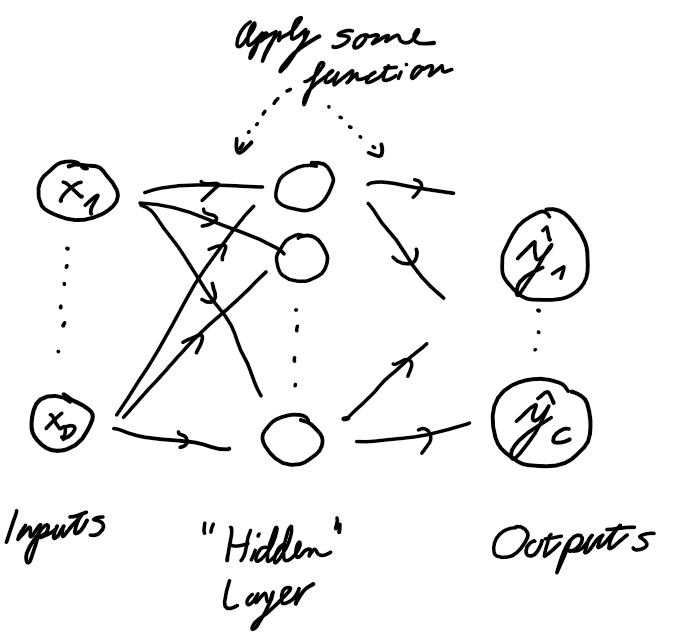 Apply some
function
x₁
ŷ₁
x_D
ŷ_C
Inputs
"Hidden"
Layer
Outputs